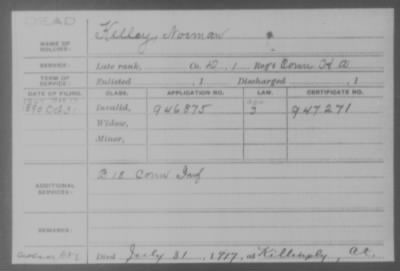 DEAD
NAME OF SOLDIER: Kelley, Norman
SERVICE: Late rank, Co. D, 1 Reg't Conn H A
TERM OF SERVICE: Enlisted , 1 Discharged , 1
DATE OF FILING. CLASS. APPLICATION NO. LAW. CERTIFICATE NO.
Invalid, 946875 3 947271
Widow,
Minor,
ADDITIONAL SERVICES: 18 Conn Inf
REMARKS:
Died July 31, 1917, at Killingly,